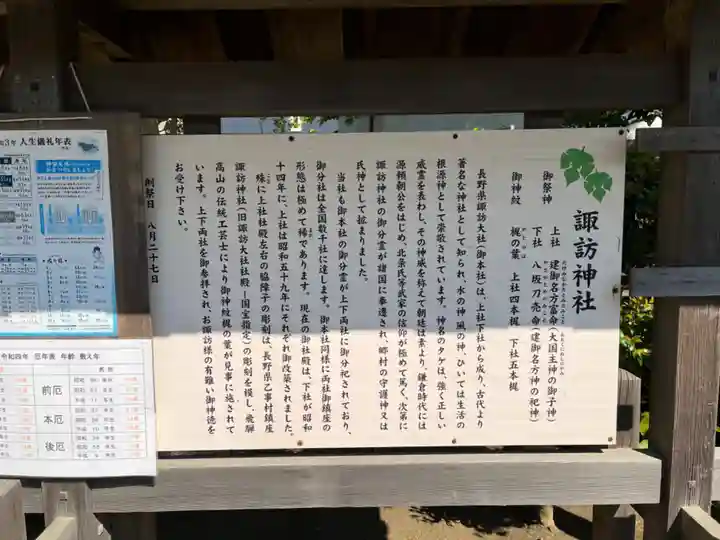 諏訪神社
御祭神 上社 建御名方富命(大国主神の御子神)
下社 八坂刀売命(建御名方神の妃神)
御神紋 梶の葉 上社四本梶、下社五本梶
長野県諏訪大社(御本社)は、上社下社から成り、古代より
著名な神社として知られ、水の神、風の神、ひいては生活の
根源神として崇敬されています。神名のタケは、強く正しい
威霊を表わし、その神威を称えて朝廷は素より、鎌倉時代には
源頼朝公をはじめ、北条氏等武家の信仰が極めて篤く、次第に
諏訪神社の御分霊が諸国に奉遷され、郷村の守護神又は
氏神として拡まりました。
当社も御本社の御分霊が上下両社に御分祀されており、
御分社は全国数千社に達します。御本社同様に両社御鎮座の
形態は極めて稀であります。現在の御社殿は、下社が昭和
十四年に、上社は昭和五十九年にそれぞれ御改築されました。
殊に上社社殿左右の脇障子の彫刻は、長野県乙事村鎮座
諏訪神社(旧諏訪大社社殿―国宝指定)の彫刻を模し、飛騨
高山の伝統工芸士により御神紋梶の葉が見事に施されて
います。上下両社を御参拝され、お諏訪様の有難い御神徳を
お受け下さい。
例祭日 八月二十七日
3年 人生儀礼年表
令和四年 厄年表 年齢 数え年
前厄
本厄
後厄